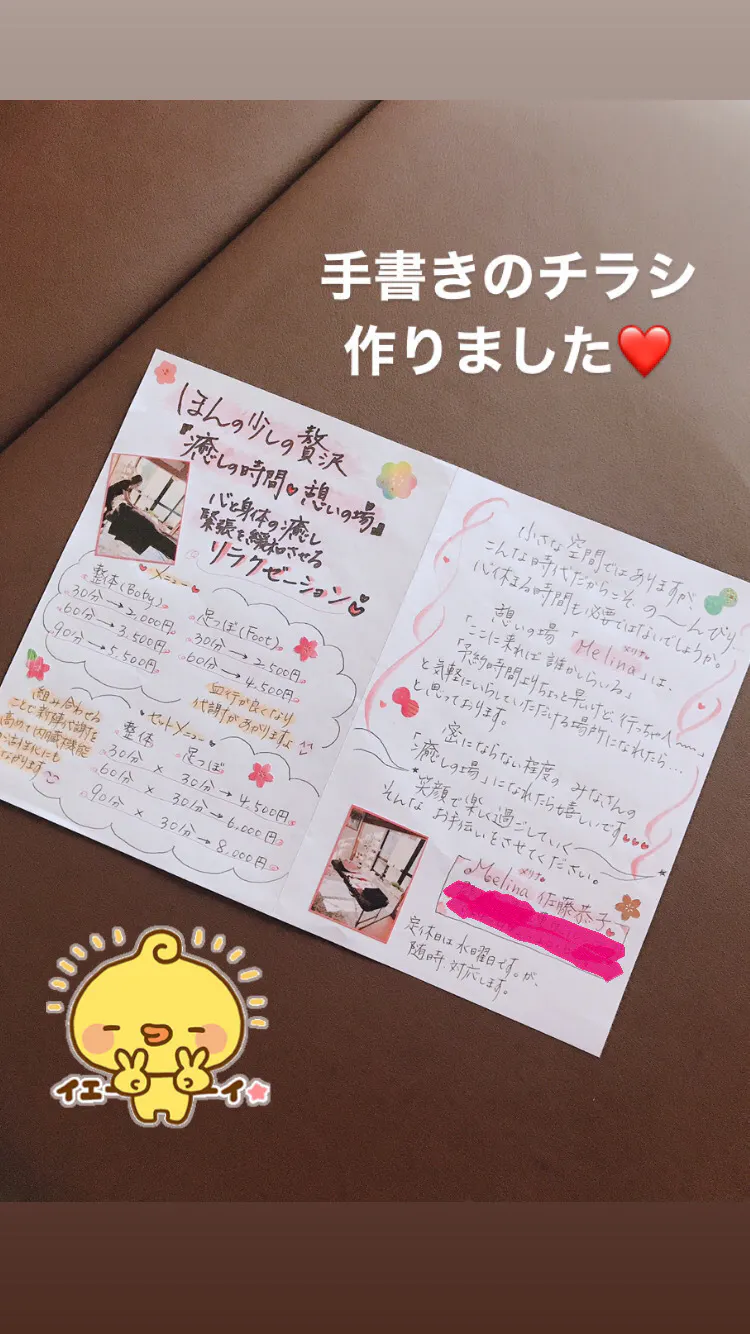 手書きのチラシ
作りました❤️
ほんの少しの贅沢
『癒しの時間♥憩いの場』
心と身体の癒し
緊張を緩和させる
リラクゼーション♥
♥メニュー♥
整体(Body)
30分→2,000円
60分→3,500円
90分→5,500円
足つぼ(Foot)
30分→2,500円
60分→4,500円
血行が良くなり
代謝があがりますよ
組み合わせる
ことで新陳代謝を
高めて内臓機能
の活性化にも
ながります
♥セットメニュー♥
整体 足つぼ
30分 × 30分→4,500円
60分 × 30分→6,000円
90分 × 30分→8,000円
小さな空間ではありますが、
こんな時代だからこそ、の〜んびり…
心休まる時間も必要ではないでしょうか。
憩いの場「Melina」は、
メリナ
「ここに来れば誰かしらいる」
「予約時間よりちょっと早いけど、行っちゃえ〜」
と気軽にいらしていただける場所になれたら…
と思っております。
密にならない程度の みなさんの
「癒しの場」になれたら嬉しいです♥♥♥
笑顔で楽しく過ごしていく
そんな お手伝いをさせてください。
メリナ
Melina 佐藤恭子
定休日は水曜日です。が、
随時 対応します。
イエーーイ